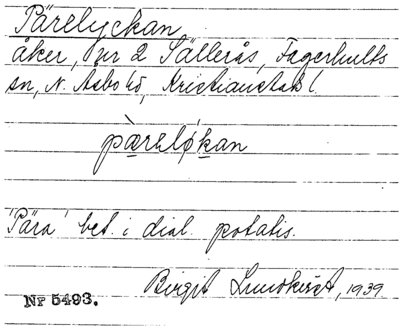 Pärelyckan
åker, nr 2 Sällerås, Fagerhults
sn, N. Åsbo hd, Kristianstads l.
pæ̀rəløkan
'Pära' bet. i dial. potatis.
Birgit Lundkvist, 1939.
Nr 5493.